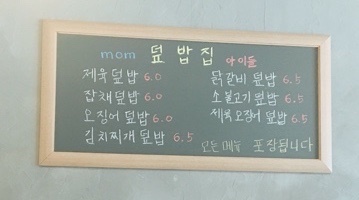 mom 덮밥집 아이들
제육덮밥 6.0
잡채덮밥 6.0
오징어 덮밥 6.0
김치찌개 덮밥 6.5
닭갈비 덮밥 6.5
소불고기 덮밥 6.5
제육오징어 덮밥 6.5
모든메뉴 포장됩니다